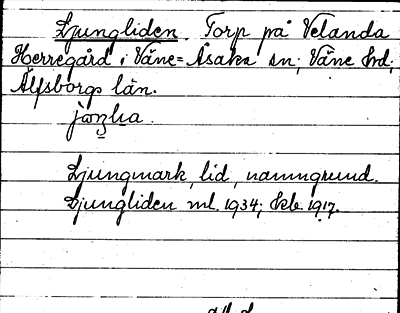 Ljungliden. Torp på Velanda
Herregård i Väne-Åsaka sn; Väne hd,
Älfsborgs län.
Ljungmark, lid, namngrund.
Ljungliden ml. 1934; Kb. 1917.